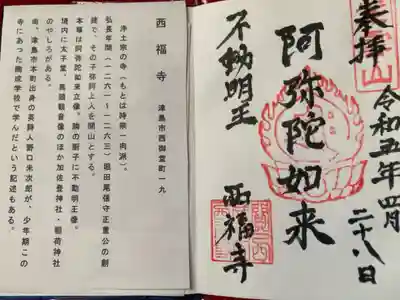 西福寺
津島市西御堂町一九
浄土宗の寺(もとは時宗一向派)。
弘長年間(一二六一~一二六三)堀田尾張守正重公の創
建で、その子弥阿上人を開山とする。
本尊は阿弥陀如来立像。隣の厨子に不動明王像。
境内に太子堂、馬頭観音像のほか加佐登神社・稲荷神社
のやしろがある。
尚、津島市本町出身の長詩人野口米次郎が、少年期この
寺にあった興成学校で学んだという記述もある。
奉拝
令和五年四月
二十八日
阿弥陀如来
不動明王
西福寺